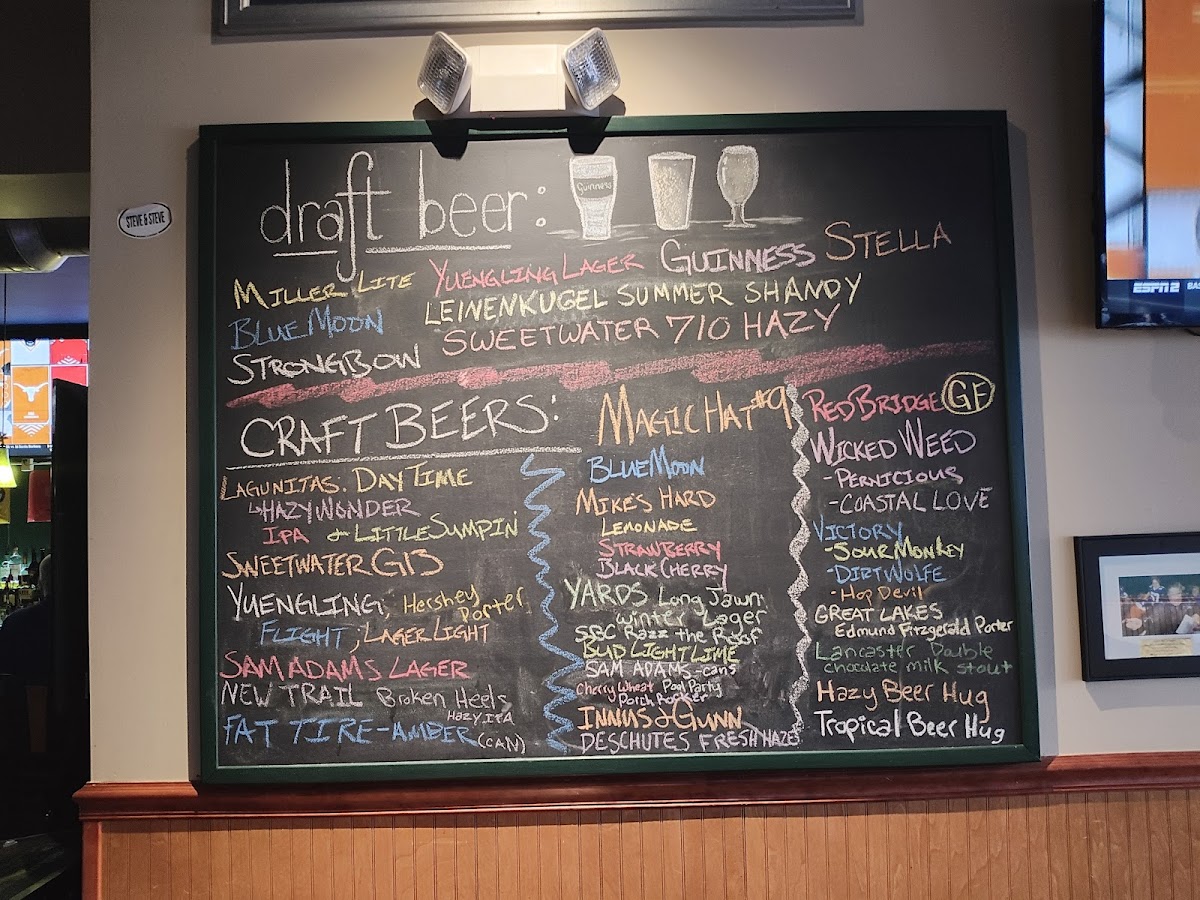 draft beer:
Guinness
MILLER LITE YUENGLING LAGER GUINNESS STELLA
BLUE MOON LEINENKUGEL SUMMER SHANDY
STRONGBOW SWEETWATER 710 HAZY
CRAFT BEERS:
LAGUNITAS. DAYTIME
↳HAZYWONDER
IPA & LITTLE SUMPIN'
SWEETWATER G13
YUENGLING, Hershey Porter
FLIGHT, LAGER LIGHT
SAM ADAMS LAGER
NEW TRAIL Broken Heels
HAZY IPA
FAT TIRE-AMBER (CAN)
MAGIC HAT #9
BLUE MOON
MIKE'S HARD
LEMONADE
STRAWBERRY
BLACK CHERRY
YARDS Long Jawn
Winter Lager
SBC Razz the Roof
BUD LIGHT LIME
SAM ADAMS-cans
Cherry Wheat Pool Party
Porch Rocker
INNIS & GUNN
DESCHUTES FRESH HAZE
RED BRIDGE GF
WICKED WEED
-PERNICIOUS
-COASTAL LOVE
VICTORY
-SOUR MONKEY
-DIRTWOLFE
-HOP DEVIL
GREAT LAKES
Edmund Fitzgerald Porter
Lancaster Double
chocolate milk stout
Hazy Beer Hug
Tropical Beer Hug
STEVE & STEVE
ESPN2 BAS